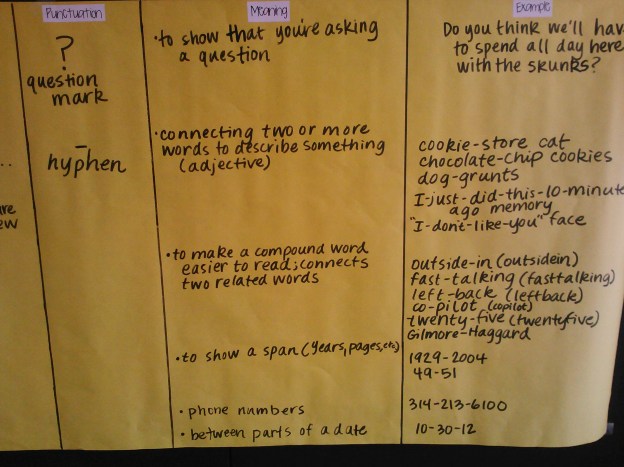 Punctuation
Meaning
Example
?
question
mark
•to show that you're asking
a question
Do you think we'll hav
to spend all day here
with the skunks?
-
hyphen
•connecting two or more
words to describe something
(adjective)
cookie-store cat
chocolate-chip cookies
dog-grunts
I-just-did-this-10-minute
ago memory
"I-don't-like-you" face
•to make a compound word
easier to read; connects
two related words
outside-in (outsidein)
fast-talking (fasttalking)
left-back (leftback)
co-pilot (copilot)
twenty-five (twentyfive)
Gilmore-Haggard
•to show a span (years, pages, etc)
1929-2004
49-51
• phone numbers
314-213-6100
• between parts of a date
10-30-12
..
are
ew